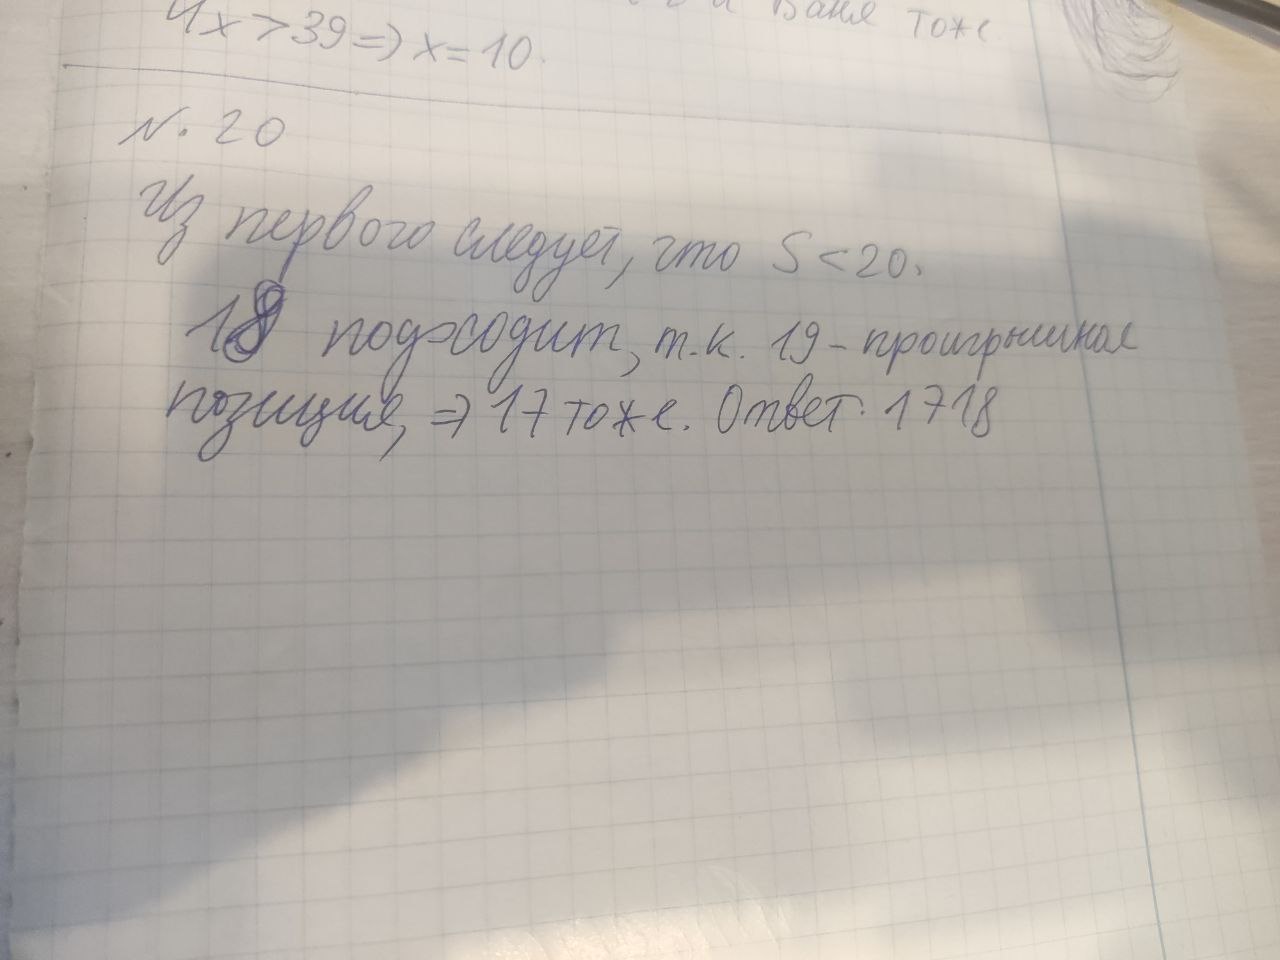 Ваня тоже
4x > 39 => x = 10.
N. 20
Из первого следует, что S < 20.
18 подходит, т.к. 19 - проигрышная
позиция, => 17 тоже. Ответ: 1718